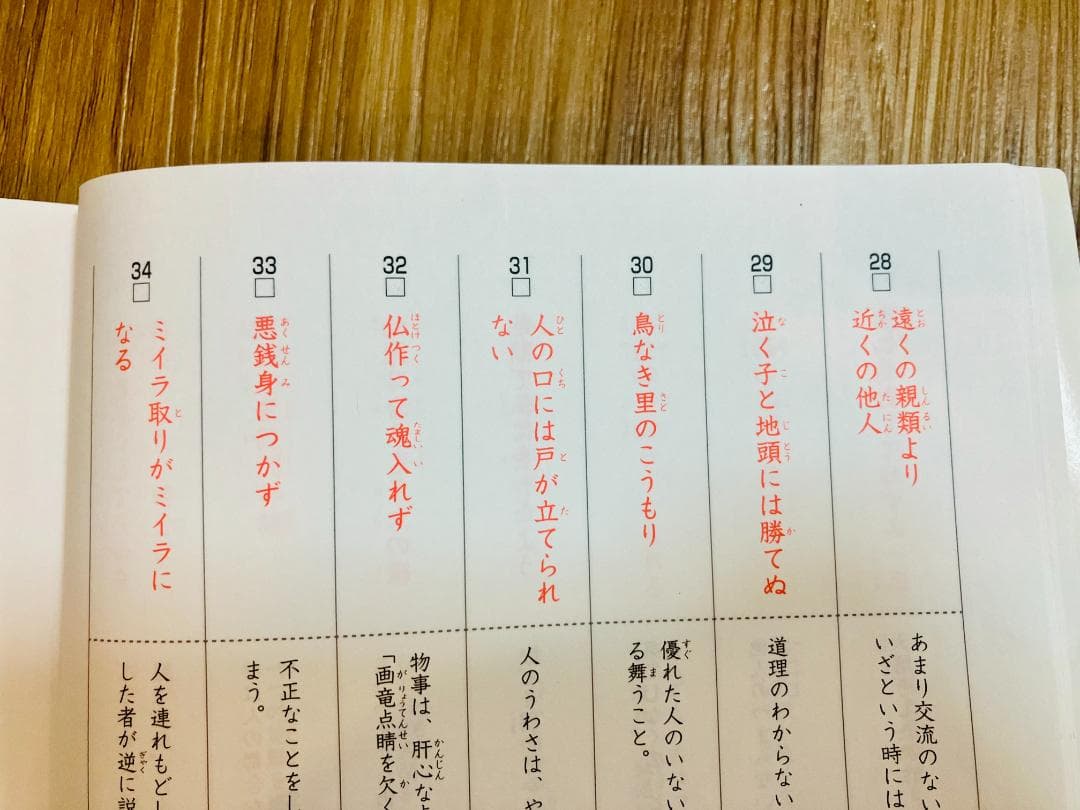 28
遠くの親類より
近くの他人
あまり交流のない
いざという時には
29
泣く子と地頭には勝てぬ
道理のわからない
30
鳥なき里のこうもり
優れた人のいない
る舞うこと。
31
人の口には戸が立てられ
ない
人のうわさは、
32
仏作って魂入れず
物事は、肝心な
「画竜点睛を欠く
33
悪銭身につかず
不正なことをし
まう。
34
ミイラ取りがミイラに
なる
人を連れもどし
した者が逆に説